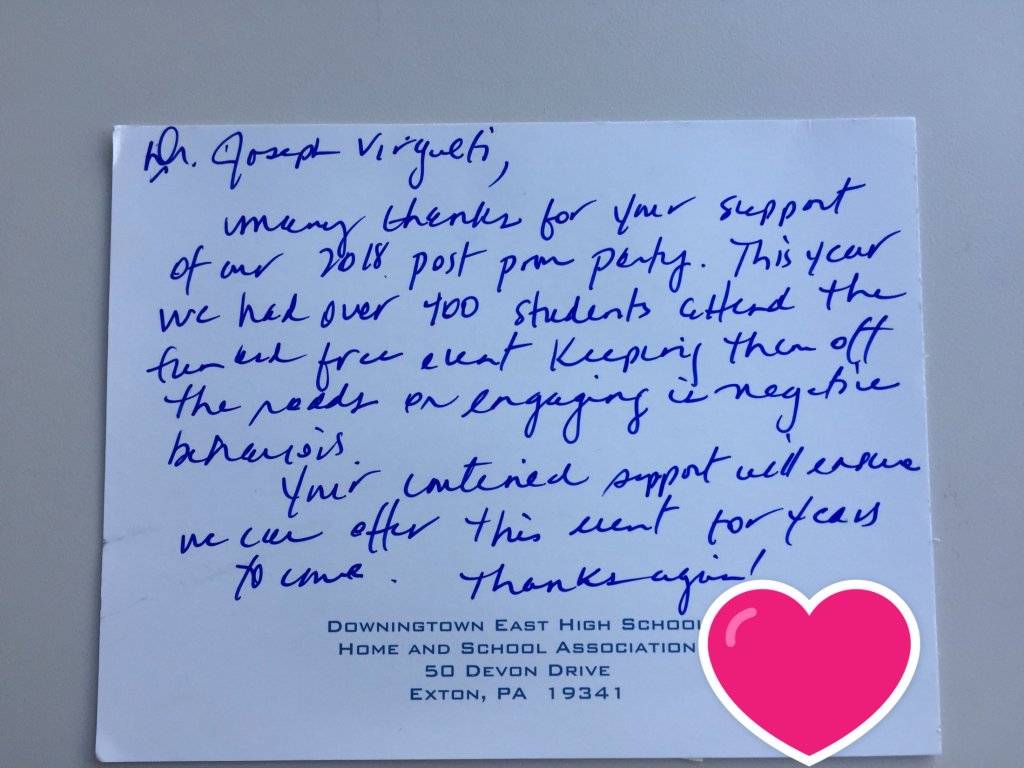 Dr. Joseph Virgueti,
many thanks for your support
of our 2018 post prom party. This year
we had over 400 students attend the
fun and free event keeping them off
the roads or engaging in negative
behaviors.
Your continued support will ensure
we can offer this event for years
to come. Thanks again!
DOWNINGTOWN EAST HIGH SCHOOL
HOME AND SCHOOL ASSOCIATION
50 DEVON DRIVE
EXTON, PA 19341